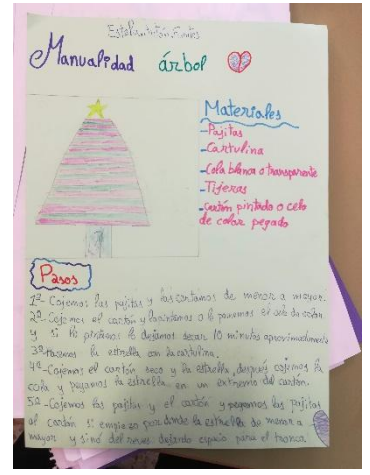 Manualidad árbol
Materiales
-Pajitas
-Cartulina
-Cola blanca o transparente
-Tijeras
-cartón pintado o celo
de color pegado
Pasos
1º- Cojemos las pajitas y las contamos de menor a mayor.
2º- Cojemos el cartón y lo pintamos o le ponemos el celo de color
y si lo pintamos lo dejamos secar 10 minutos aproximadamente
3º- Hacemos la estrella con la cartulina.
4º- Cojemos el cartón seco y la estrella, después cojemos la
cola y pegamos la estrella en un extremo del cartón.
5º- Cojemos las pajitas y el cartón y pegamos las pajitas
al cartón si empiezo por donde la estrella de menor a
mayor y sino del dejando espacio para el tronco